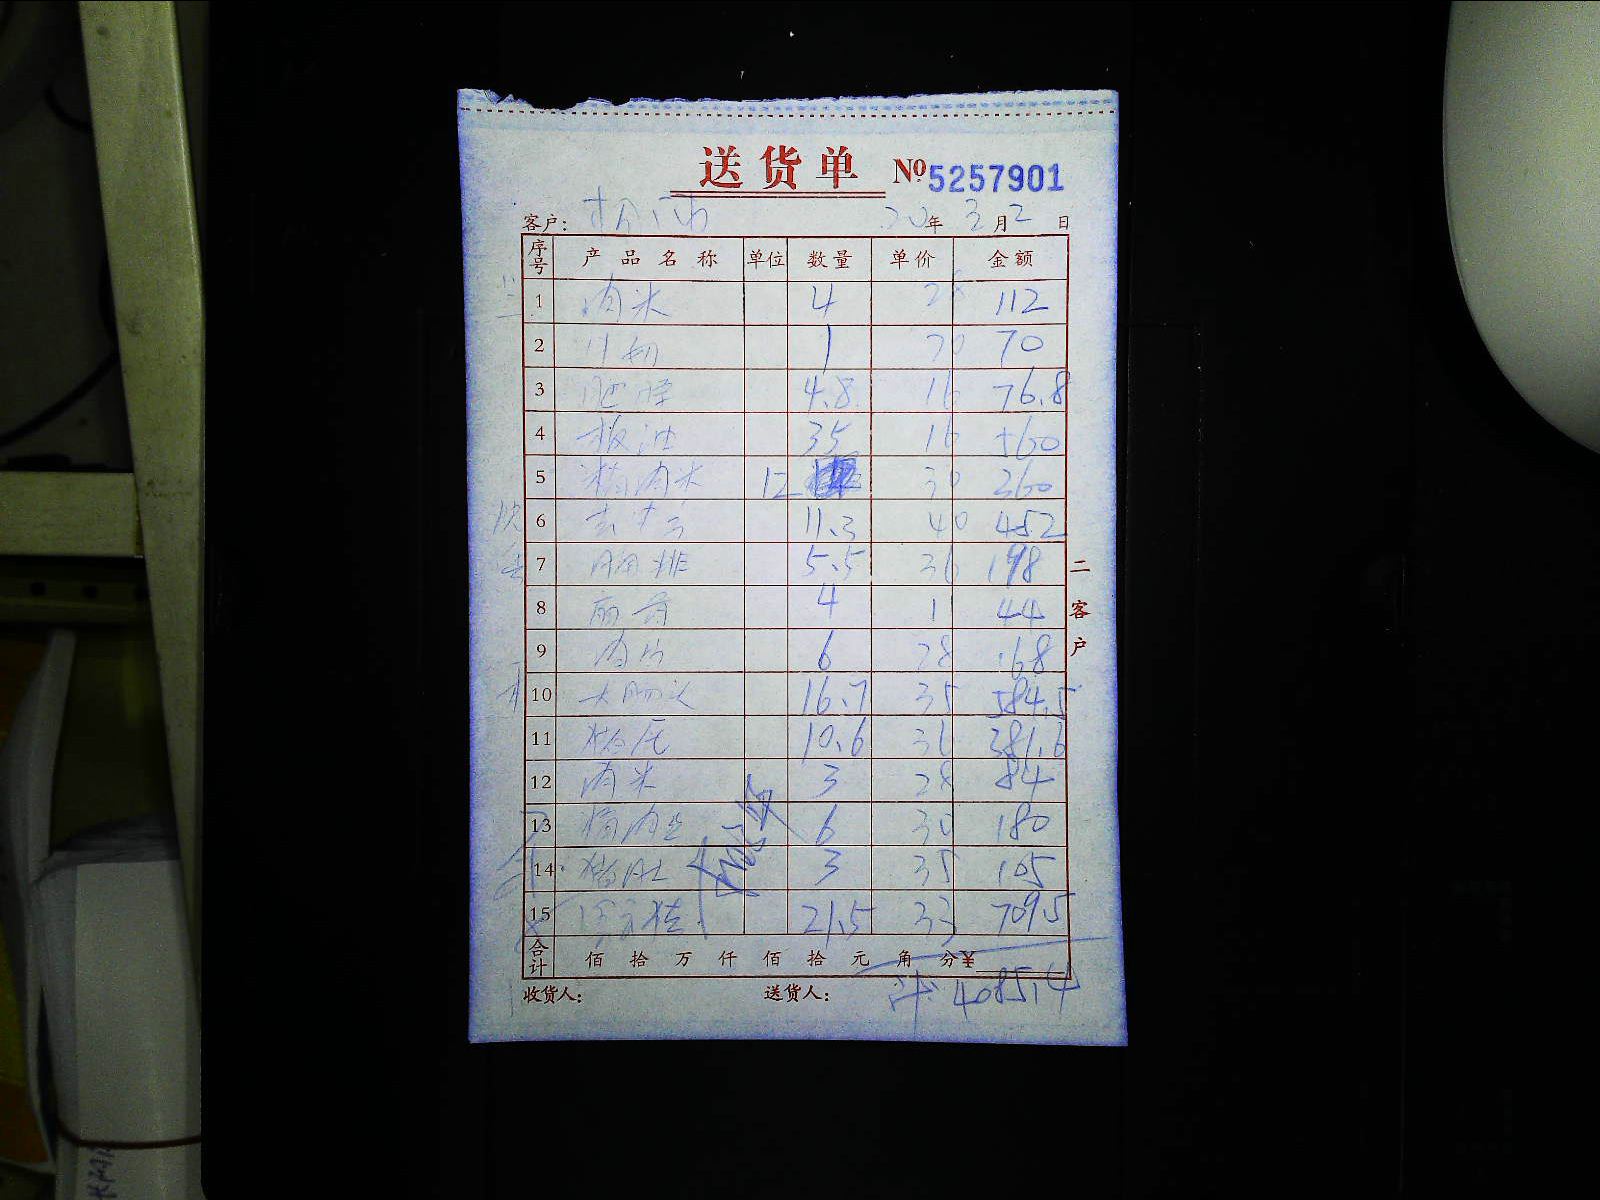 送货单 №5257901
客户： 年 3 月 2 日
序号 产品名称 单位 数量 单价 金额
1 肉米 4 28 112
2 1 70 70
3 肥膘 4.8 16 76.8
4 板油 35 16 560
5 精肉米 12 30 360
6 11.3 40 452
7 胸排 5.5 36 198
8 4 44
9 肉片 6 28 168
10 大肠头 16.7 35 584.5
11 10.6 36 381.6
12 肉米 3 28 84
13 精肉丝 6 30 180
14 猪肚 3 35 105
15 21.5 33 709.5
合计 佰拾万仟佰拾元角分¥
收货人： 送货人： 4085.4
二客户